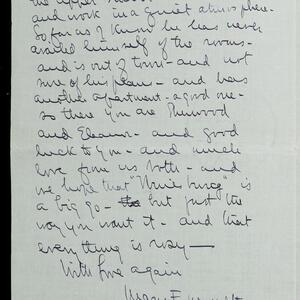 the upper
and work in a quiet atmosphere.
So far as I know he has never
availed himself of the rooms -
and is out of town - and not
sure of his plans - and has
another apartment - a good one -
so there you are Pinwood
and Eleanor - and good
luck to you - and much
love from us both - and
we hope that
a big go - but just the
way you want it - and that
everything is rosy -
With love again